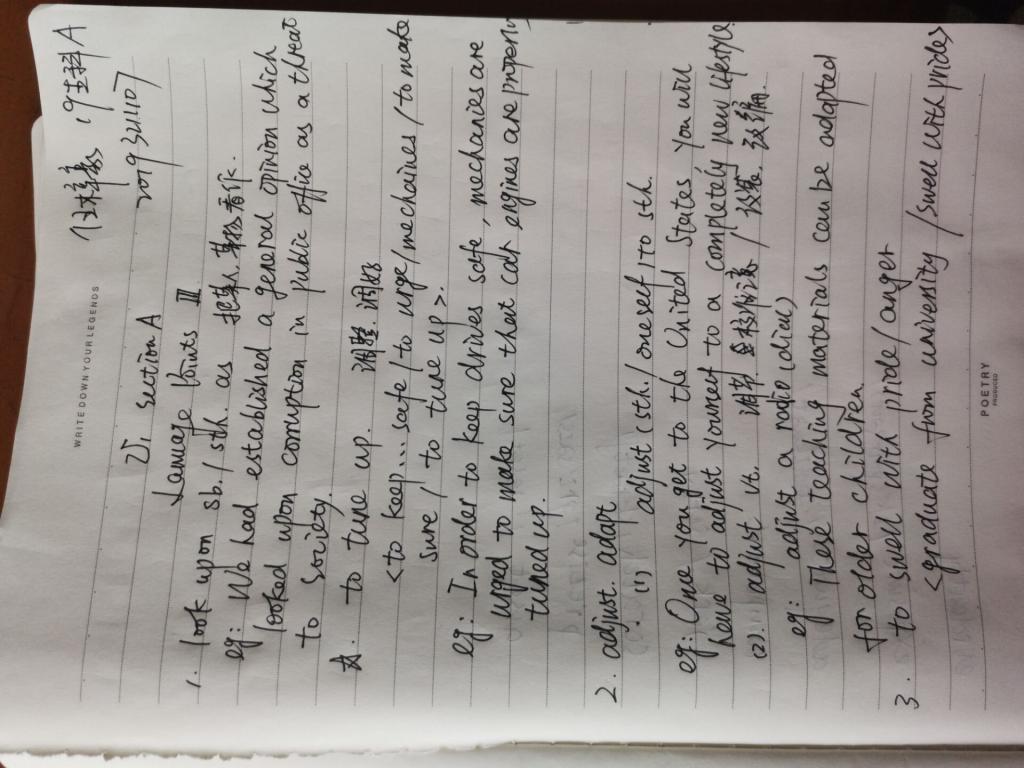 19生科A
2019321107
WRITE DOWN YOUR LEGENDS
U1, section A
Lanuage Points III
1. look upon sb./sth. as 把某人某物看作.
eg: We had established a general opinion which
looked upon corruption in public office as a threat
to society.
☆. to tune up. 调整 调好
<to keep...safe/to urge/mechaines/to make
sure/to tune up>.
eg: In order to keep drives safe, mechanies are
urged to make sure that cat engines are properly
tuned up.
2. adjust. adapt
(1) adjust (sth./oneself) to sth.
eg: One you get to the United States, you will
have to adjust yourself to a completely new lifestyle.
(2). adjust vt. 调整 /改编
eg: adjust a radio (dial)
These teaching materials can be adapted
for older children.
3. to swell with pride/anger
<graduate from university /swell with pride>
POETRY
PRODUCED